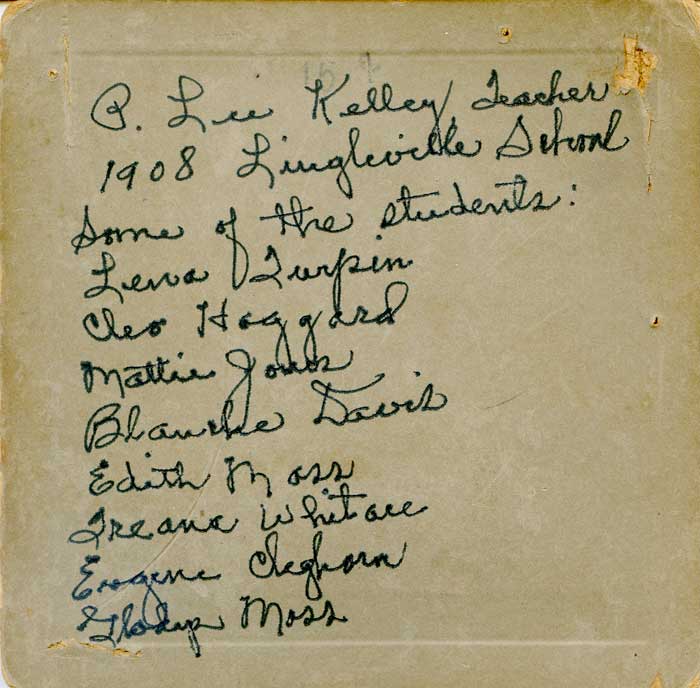 P. Lee Kelley, Teacher
1908 Lingleville School
Some of the students:
Lena Turpin
Cleo Haggard
Mattie Jones
Blanche Davis
Edith Moss
Treana Whitace
Eugene Cleghorn
Gladys Moss